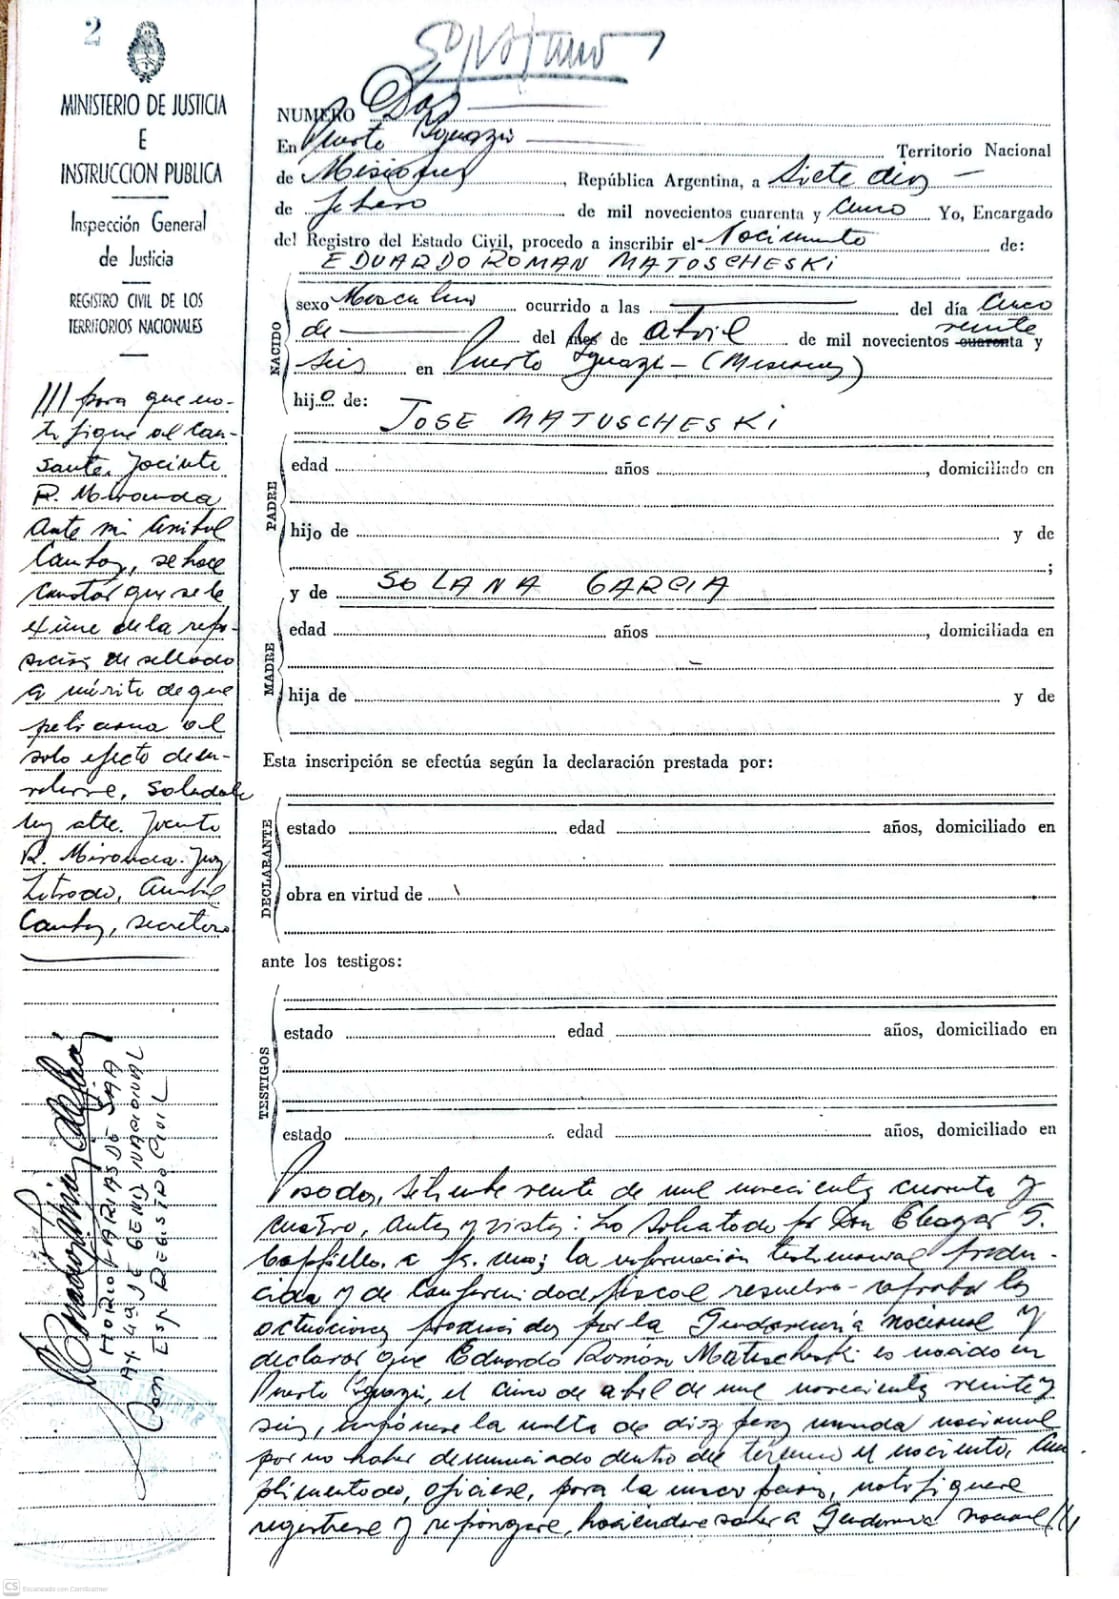 2
MINISTERIO DE JUSTICIA
E
INSTRUCCION PUBLICA
Inspección General
de Justicia
REGISTRO CIVIL DE LOS
TERRITORIOS NACIONALES
NUMERO Dos
En Puerto Iguazú Territorio Nacional
de Misiones, República Argentina, a Siete dias
de febrero de mil novecientos cuarenta y cinco Yo, Encargado
del Registro del Estado Civil, procedo a inscribir el Nacimiento de:
EDUARDO ROMAN MATUSCHESKI
NACIDO
sexo Masculino ocurrido a las del día Cinco
de del mes de abril de mil novecientos cuarenta y
veinte
seis en Puerto Iguazú - (Misiones)
hijo de: JOSE MATUSCHESKI
PADRE
edad años , domiciliado en
hijo de y de
;
y de SOLANA GARCIA
MADRE
edad años , domiciliada en
hija de y de
Esta inscripción se efectúa según la declaración prestada por:
DECLARANTE
estado edad años, domiciliado en
obra en virtud de
ante los testigos:
TESTIGOS
estado edad años, domiciliado en
estado edad años, domiciliado en
Posadas, Setiembre veinte de mil novecientos cuarenta y
cuatro, Autos y vistos: Lo solicitado por Don Eleazar S.
a fs. uno; la información testimonial produ-
cida y de conformidad fiscal resuelvo- aprobar las
actuaciones producidas por la Gendarmería nacional y
declarar que Eduardo Román Matuscheski es nacido en
Puerto Iguazú, el cinco de abril de mil novecientos veinte y
seis, impónese la multa de diez pesos moneda nacional
por no haber denunciado dentro del termino el nacimiento, Cum-
plimentado, ofíciese, para la inscripción, notifiquese
registrese y repongase, haciendose saber a Gendarmeria nacional ///
/// para que no-
tifique al cau-
sante. Jacinto
R. Miranda
Ante mi Anibal
, se hace
constar que se le
exime de la repo-
sición de sellado
a mérito de que
peticiona al
solo efecto de en-
rolarse,
ley atte. Jacinto
R. Miranda. Juez
Letrado, Anibal
, secretario
MARIO FARIAS DE SAA
AY. GENDNACIONAL
REGISTRO CIVIL
CS Escaneado con CamScanner